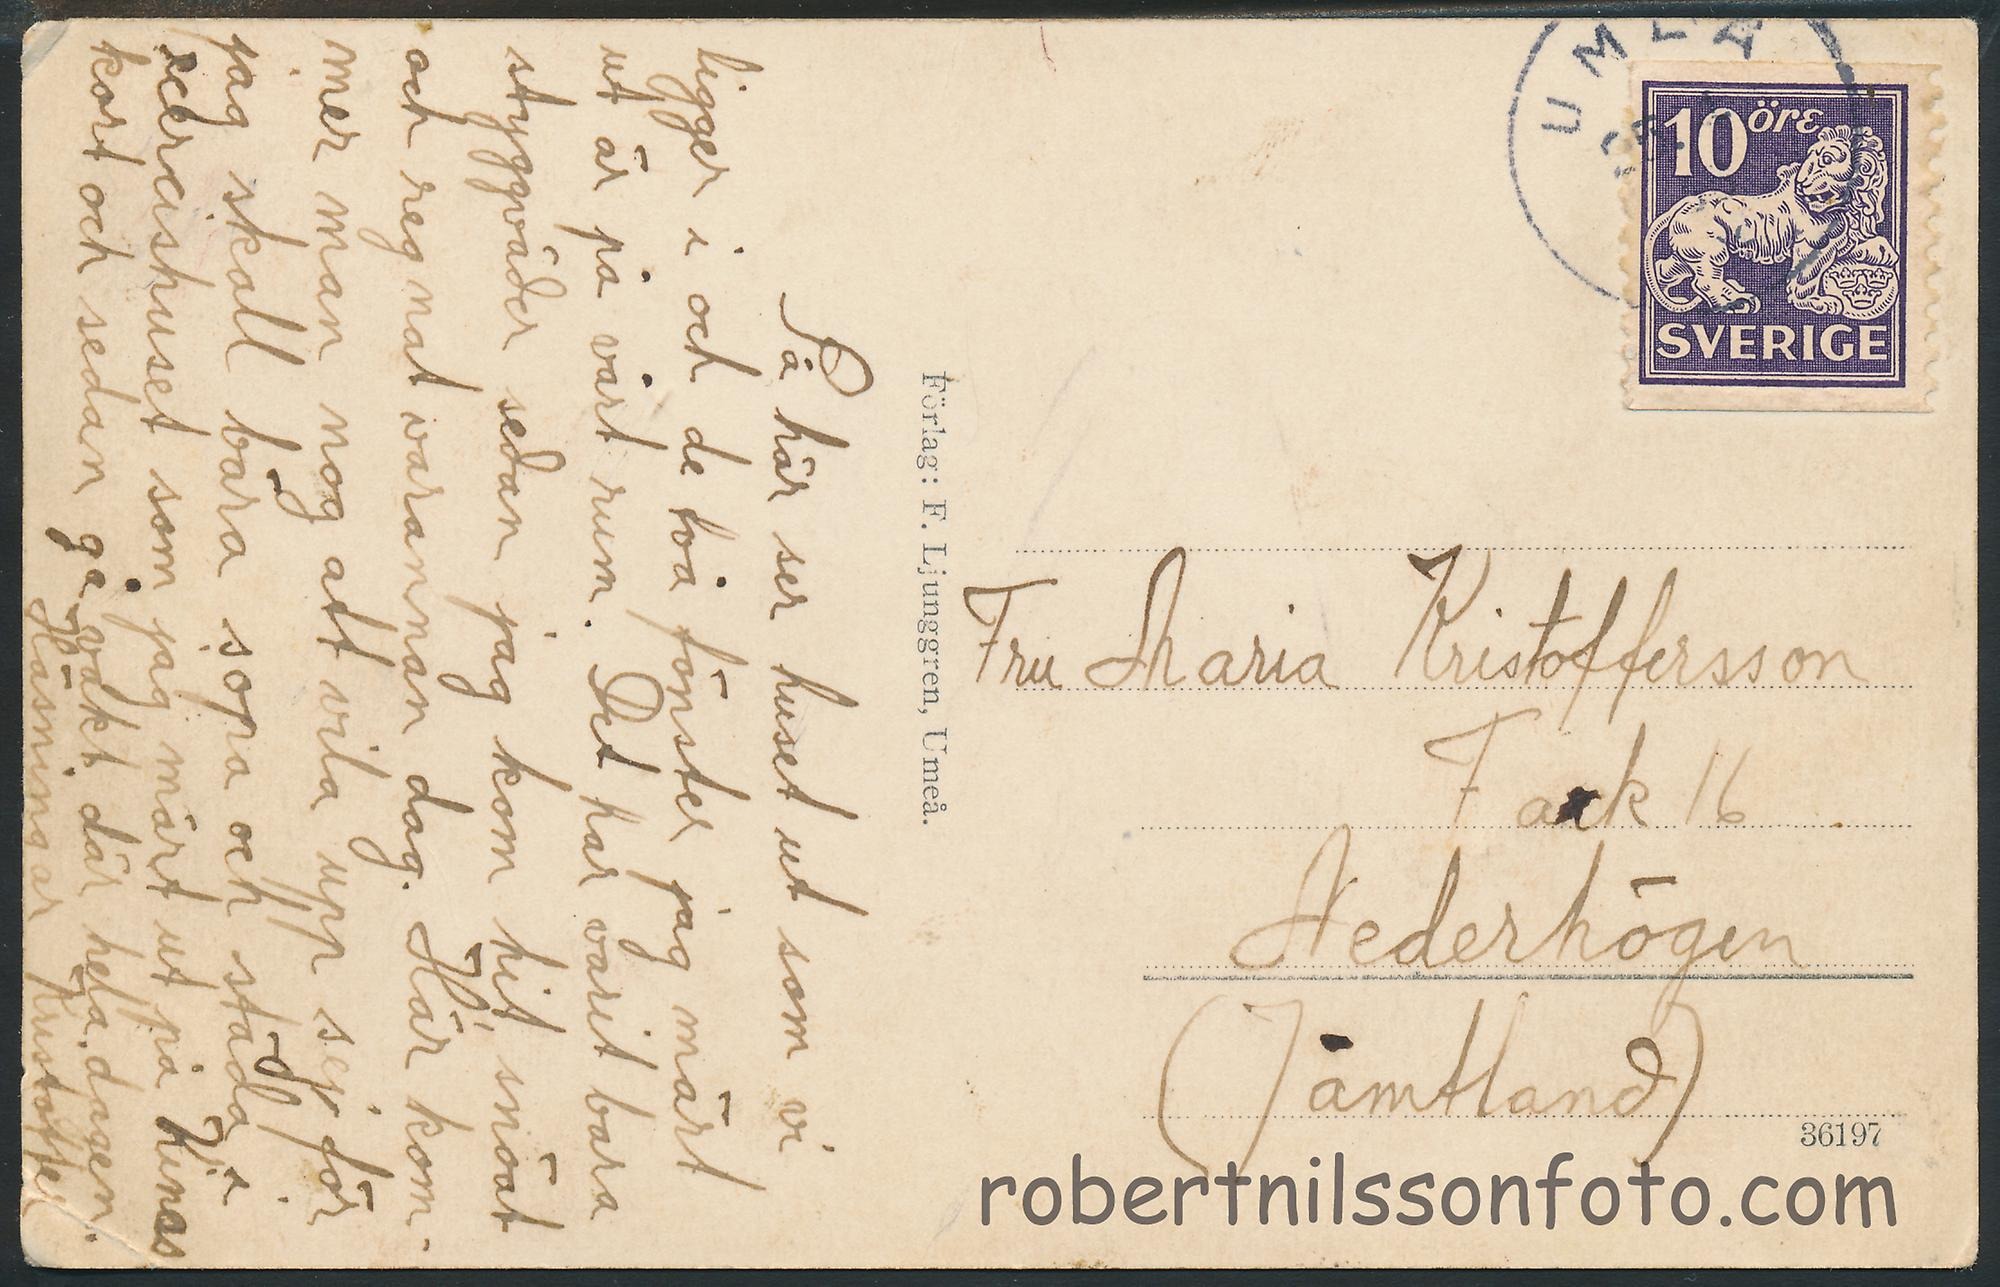 Så här ser huset ut som vi
ligger i och de två fönster jag märt
ut är på vårt rum. Det har varit bara
styggväder sedan jag kom hit snöat
och regnat varannan dag. Här kom-
mer man nog att vila upp sej för
jag skall bara sopa och städa i
excercishuset som jag märt ut på
kort och sedan gå vakt där hela dagen.
Häsningar Kristoffer
Förlag: F. Ljunggren, Umeå.
UMEÅ
10 öre
SVERIGE
Fru Maria Kristoffersson
Fack 16
Nederhögen
(Jämtland)
36197
robertnilssonfoto.com